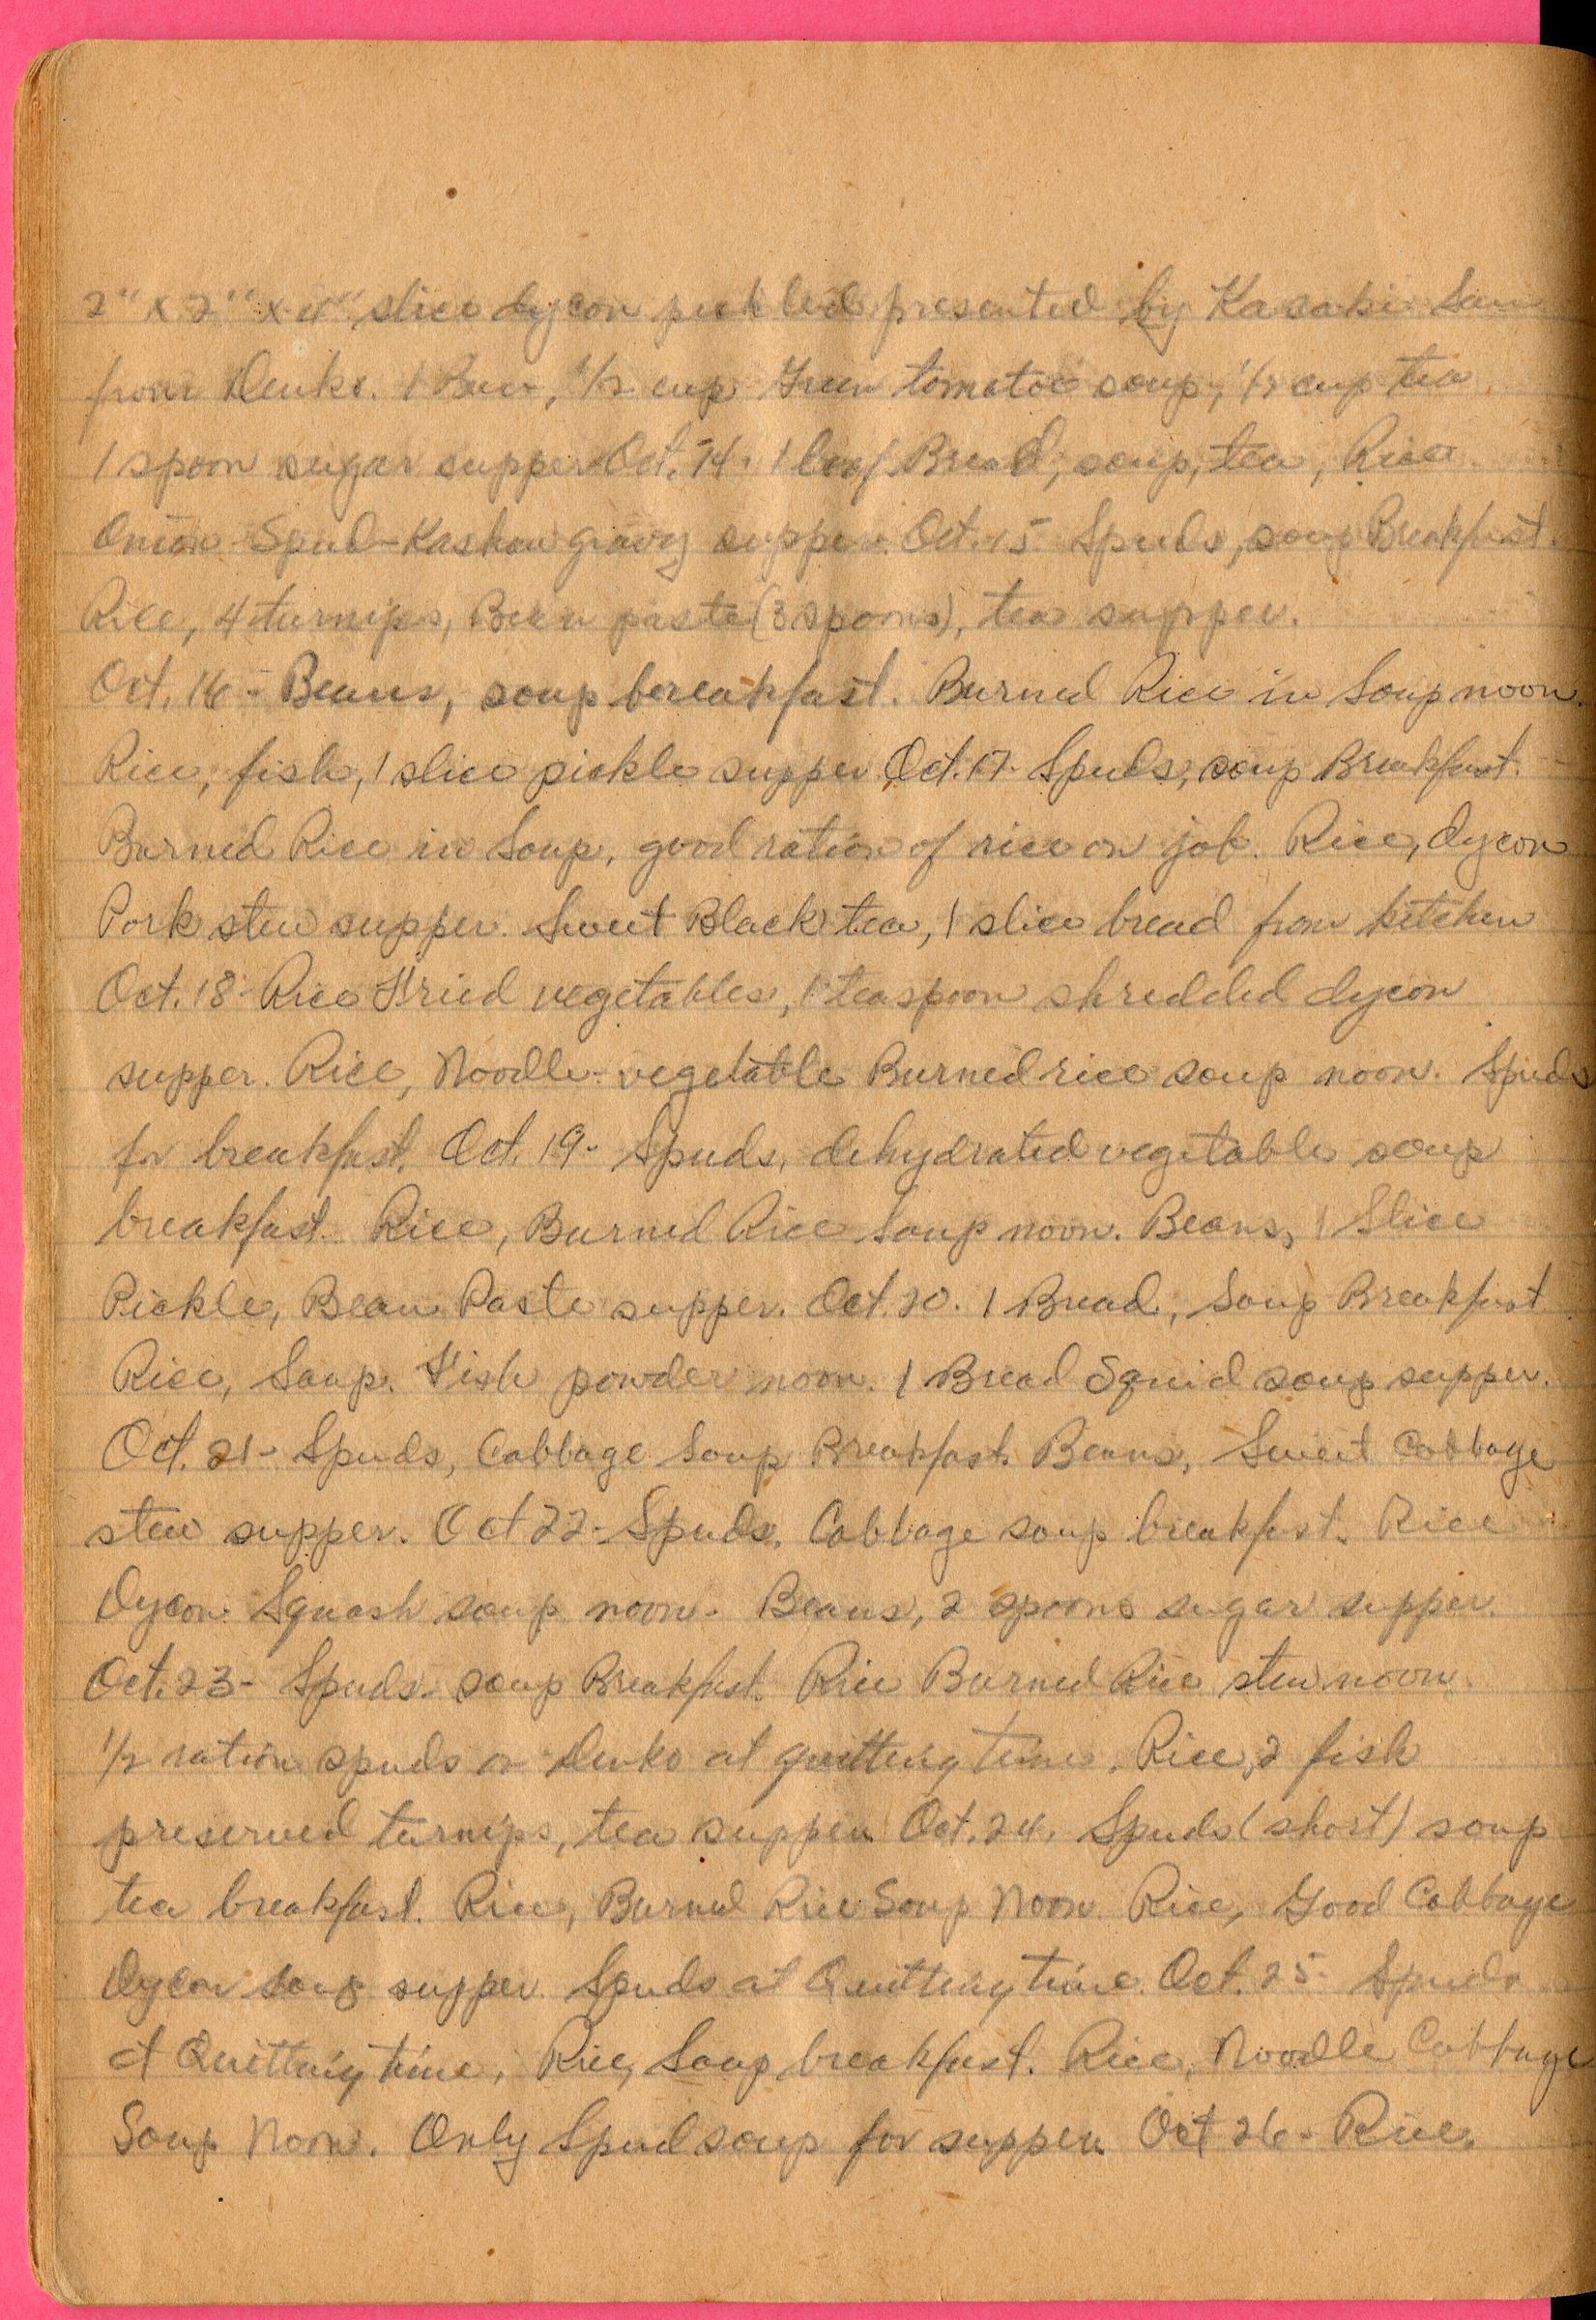 2" x 2" x 4" slice dycon pickled presented by Kasaki San
from Denko. 1 Bun, 1/2 cup Green tomatoe soup, 1/2 cup tea
1 spoon sugar supper Oct. 14. 1 loaf Bread, soup, tea, Rice
Onion Spud-Kashaw gravy supper. Oct. 15 Spuds, soup Breakfast.
Rice, 4 turnips, Bean paste (3 spoons), tea supper.
Oct. 16 - Beans, soup bereakfast. Burned Rice in Soup noon.
Rice, fish, 1 slice pickle supper Oct. 17. Spuds, soup Breakfast.
Burned Rice in Soup, good ration of rice on job. Rice, dycon
Pork stew supper. Sweet Black tea, 1 slice bread from kitchen
Oct. 18 - Rice Fried vegetables, 1 teaspoon shredded dycon
supper. Rice, Noodle - vegetable Burned rice soup noon. Spuds
for breakfast. Oct. 19 - Spuds, dehydrated vegetables soup
breakfast. Rice, Burned Rice Soup noon. Beans, 1 Slice
Pickle, Bean Paste supper. Oct. 20. 1 Bread, Soup Breakfast
Rice, Soup. Fish powder noon. 1 Bread Squid soup supper.
Oct. 21 - Spuds, Cabbage Soup Breakfast. Beans, Sweet Cabbage
stew supper. Oct 22 - Spuds, Cabbage soup breakfast. Rice
Dycon Squash soup noon. Beans, 2 spoons sugar supper.
Oct. 23 - Spuds - soup Breakfast. Rice Burned Rice stew noon.
1/2 ration spuds on Denko at quitting time. Rice, 2 fish
preserved turnips, tea supper Oct. 24. Spuds (short) soup
tea breakfast. Rice, Burned Rice Soup Noon Rice, Good Cabbage
Dycon soup supper Spuds at Quitting time. Oct. 25 - Spuds
at Quitting time, Rice, Soup breakfast. Rice, Noodle Cabbage
Soup Noon. Only Spud soup for supper. Oct 26 - Rice,